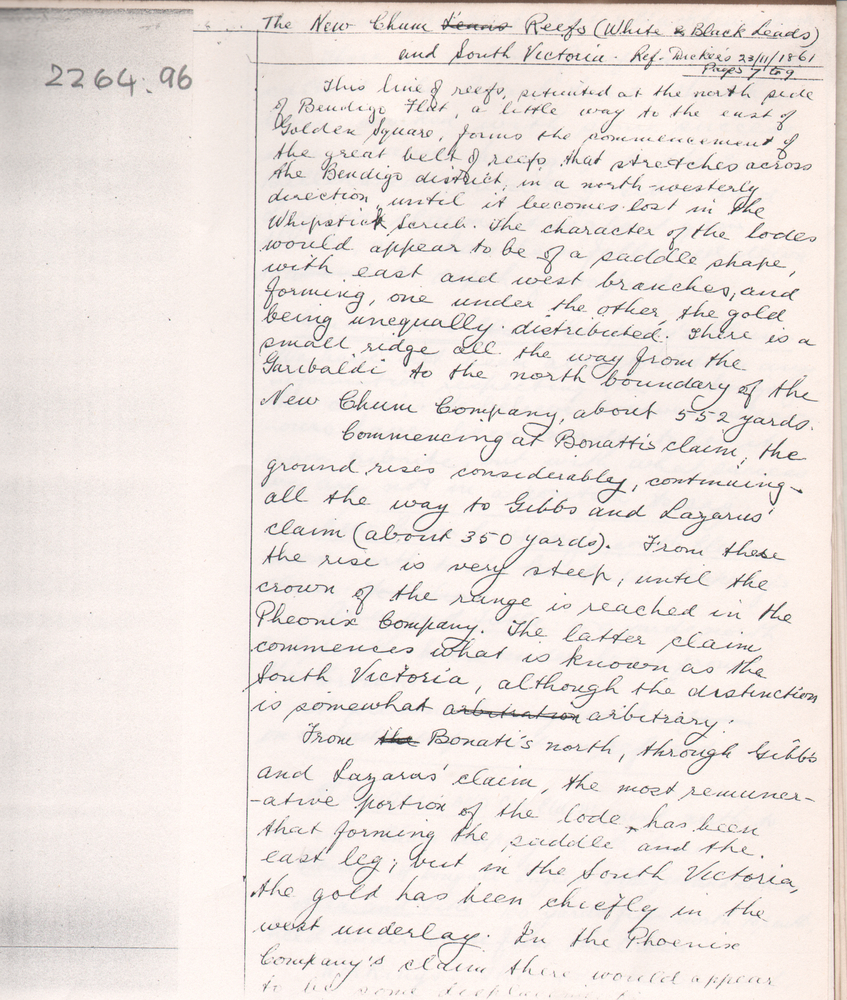 The New Chum Tennis Reefs (White & Black Leads)
and South Victoria. Ref. Dicker's 23/11/1861
Pages 7 to 9
2264.96
This line of reefs, situated at the north side
of Bendigo Flat, a little way to the east of
Golden Square, forms the commencement of
the great belt of reefs that stretches across
the Bendigo district, in a north-westerly
direction, until it becomes lost in the
Whipstick Scrub. The character of the lodes
would appear to be of a saddle shape,
with east and west branches, and
forming, one under the other, the gold
being unequally distributed. There is a
small ridge all the way from the
Garibaldi to the north boundary of the
New Chum Company, about 552 yards.
Commencing at Bonatti's claim, the
ground rises considerably, continuing
all the way to Gibbs and Lazarus'
claim (about 350 yards). From these
the rise is very steep, until the
crown of the range is reached in the
Pheonix Company. The latter claim
commences what is known as the
South Victoria, although the distinction
is somewhat arbitration arbitrary.
From the Bonati's north, through Gibbs
and Lazarus' claim, the most remuner-
-ative portion of the lode has been
that forming the saddle and the
east leg; but in the South Victoria,
the gold has been chiefly in the
west underlay. In the Phoenix
Company's claim there would appear
to be some